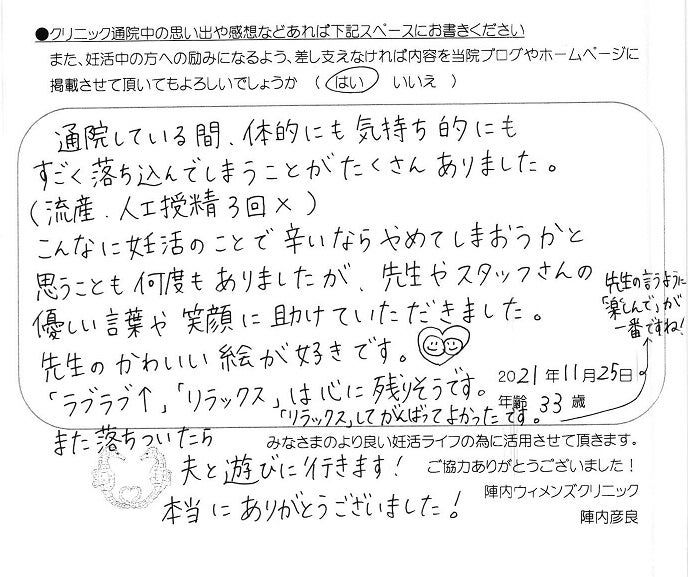 ●クリニック通院中の思い出や感想などあれば下記スペースにお書きください
また、妊活中の方への励みになるよう、差し支えなければ内容を当院ブログやホームページに
掲載させて頂いてもよろしいでしょうか （ はい　いいえ ）
通院している間、体的にも気持ち的にも
すごく落ち込んでしまうことがたくさんありました。
（流産、人工授精３回×）
こんなに妊活のことで辛いならやめてしまおうかと
思うことも何度もありましたが、先生やスタッフさんの
優しい言葉や笑顔に助けていただきました。
先生のかわいい絵が好きです。
「ラブラブ↑」「リラックス」は心に残りそうです。
「リラックス」してがんばってよかったです。
先生の言うように
「楽しんで」が
一番ですね!
2021年11月25日
年齢 33歳
また落ちついたら
夫と遊びに行きます!
本当にありがとうございました!
みなさまのより良い妊活ライフの為に活用させて頂きます。
ご協力ありがとうございました！
陣内ウィメンズクリニック
陣内彦良